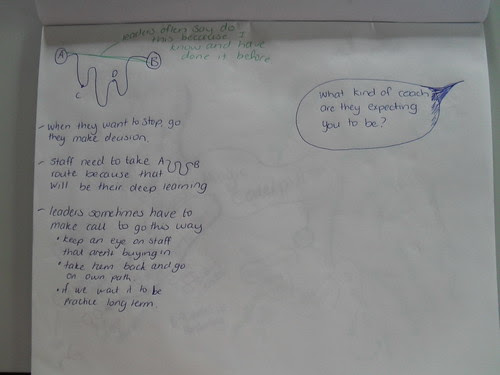 leaders often say do
this because I
know and have
done it before
A
B
C
D
- when they want to stop, go
they make decision.
- staff need to take A B
route because that
will be their deep learning
- leaders sometimes have to
make call to go this way
• keep an eye on staff
that aren't buying in
• take them back and go
on own path.
• if we want it to be
practice long term.
What kind of coach
are they expecting
you to be?